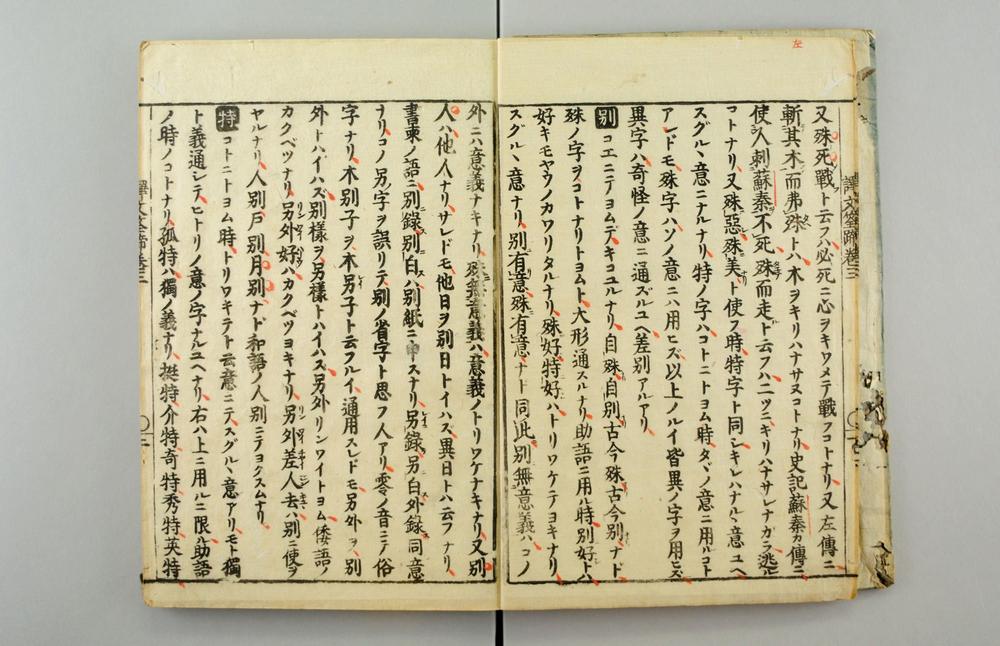 左
譯文筌蹄卷三
又殊死戰ト云フハ必死ニ心ヲキワメテ戰フコトナリ又左傳ニ
斬其木而弗殊トハ木ヲキリハナサヌコトナリ史記蘇秦カ傳ニ
使人刺蘇秦不死殊而走ト云フハ二ツニキリハナサレナガラ逃ル
コトナリ又殊惡殊美ト使フ時特字ト同シキレハナルヽ意ユヘ
スグルヽ意ニナルナリ特ノ字ハコトニトヨム時タヾノ意ニ用ルコト
アレドモ殊字ハソノ意ニハ用ヒズ以上ノルイ皆異ノ字ヲ用ヒズ
異字ハ奇怪ノ意ニ通ズルユヘ差別アルアリ
別 コエニテヨムデキコユルナリ自殊自別古今殊古今別ナド
殊ノ字ヲコトナリトヨムト大形通スルナリ助語ニ用ル時別好トハ
好キモヤウノカワリタルナリ殊好特好ハトリワケテヨキナリ
スグルヽ意ナリ別有意殊有意ナト同此別無意義ハコノ
外ニハ意義ナキナリ殊無意義ハ意義ノトリワケナキナリ又別
人ハ他人ナリサレドモ他日ヲ別日トイハズ異日トハ云フナリ
書柬ノ語ニ別錄別白ハ別紙ニ申スナリ另錄另白外錄同意
ナリコノ另字ヲ誤リテ別ノ省字ト思フ人アリ零ノ音ニテ俗
字ナリ木別子ヲ木另子ト云フルイ通用スレドモ另外ヲ別
外トハイハズ別樣ヲ另樣トハイハズ另外リンワイトヨム倭語ノ
カクベツナリ另外好ハカクベツヨキナリ另外差人去ハ別ニ使ヲ
ヤルナリ人別戸別月別ナド和語ノ人別ニテヨクスムナリ
特 コトニトヨム時トリワキテト云意ニテスグルヽ意アリモト獨
ト義通シテヒトリノ意ノ字ナルユヘナリ右ハ上ニ用ルニ限ル助語
ノ時ノコトナリ孤特ハ獨ノ義ナリ挺特介特奇特秀特英特
譯文筌蹄卷三